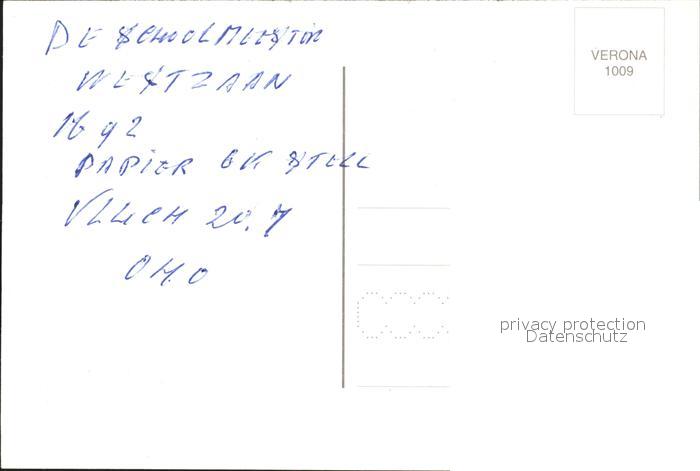 DE SCHOOLMEESTER
WESTZAAN
1692
PAPIER
VLUCH 20.7
OH.O
VERONA
1009
privacy protection
Datenschutz